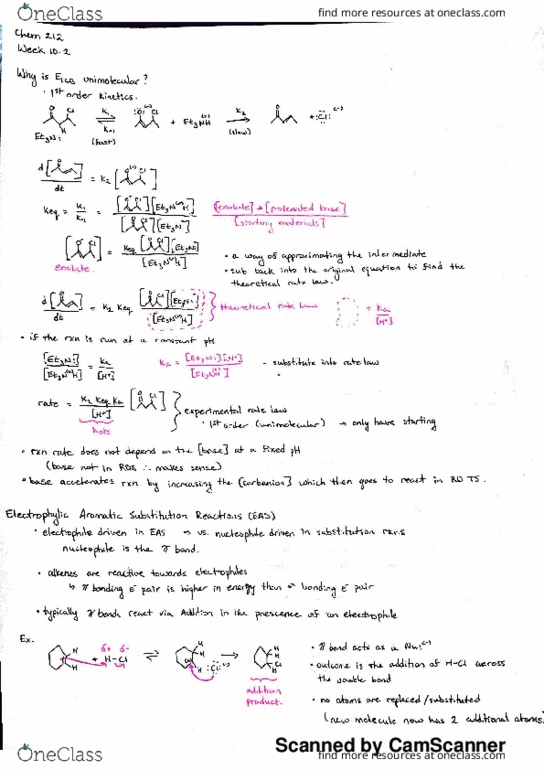 OneClass
find more resources at oneclass.com
Chem 212
Week 10.2
Why is E1cB unimolecular?
• 1st order kinetics.
Et3N:
k1
k-1
(fast)
+ Et3NH
k2
(slow)
+ :Cl: (-)
d[ ]
dt
= k2 [ ]
Keq = k1 / k-1 = [ ][Et3N(+)H] / [ ][Et3N]
[enolate] + [protonated base]
[starting materials]
[ ] = Keq [ ][Et3N] / [Et3N(+)H]
enolate.
• a way of approximating the intermediate
• sub back into the original equation to find the
theoretical rate law.
d[ ]
dt
= k2 Keq [ ][Et3N:] / [Et3N(+)H]
theoretical rate law
= Ka / [H+]
• if the rxn is run at a constant pH
[Et3N:] / [Et3N(+)H] = Ka / [H+]
Ka = [Et3N:][H+] / [Et3N(+)H]
- substitute into rate law
rate = k2 Keq Ka / [H+] [ ]
kobs
experimental rate law
• 1st order (unimolecular) → only have starting
• rxn rate does not depend on the [base] at a fixed pH
(base not in RDS ∴ makes sense)
• base accelerates rxn by increasing the [carbanion] which then goes to react in RD TS.
Electrophylic Aromatic Substitution Reactions (EAS)
• electrophile driven in EAS → vs. nucleophile driven in substitution rxns
nucleophile is the π bond.
• alkenes are reactive towards electrophiles
↳ π bonding e- pair is higher in energy than σ bonding e- pair
• typically π bonds react via Addition in the prescence of an electrophile
Ex.
H
H
+ H-Cl
δ+ δ-
H
H
H
:Cl: (-)
H
H
H
Cl
addition
product.
• π bond acts as a Nu:(-)
• outcome is the addition of H-Cl across
the double bond
• no atoms are replaced/substituted
(new molecule now has 2 additional atoms)
Scanned by CamScanner
OneClass
find more resources at oneclass.com